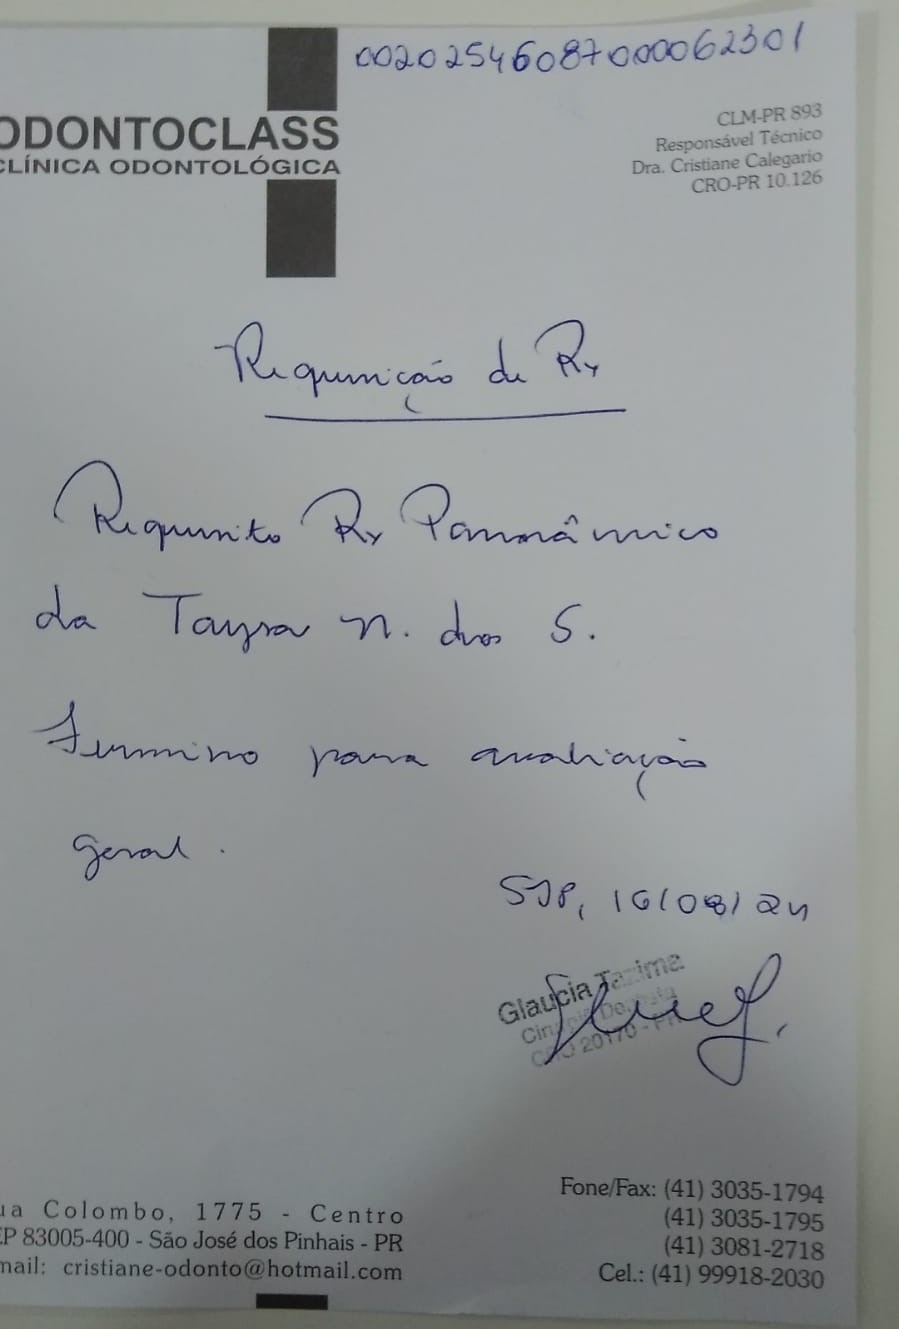 00202546087000062301
ODONTOCLASS
CLÍNICA ODONTOLÓGICA
CLM-PR 893
Responsável Técnico
Dra. Cristiane Calegario
CRO-PR 10.126
Requisição de Rx
Requisito Rx Panorâmico
da Taysa N. dos S.
para avaliação
geral.
SJP, 16/08/24
Glaucia Tazima
CRO 20170 - PR
ua Colombo, 1775 - Centro
EP 83005-400 - São José dos Pinhais - PR
mail: cristiane-odonto@hotmail.com
Fone/Fax: (41) 3035-1794
(41) 3035-1795
(41) 3081-2718
Cel.: (41) 99918-2030